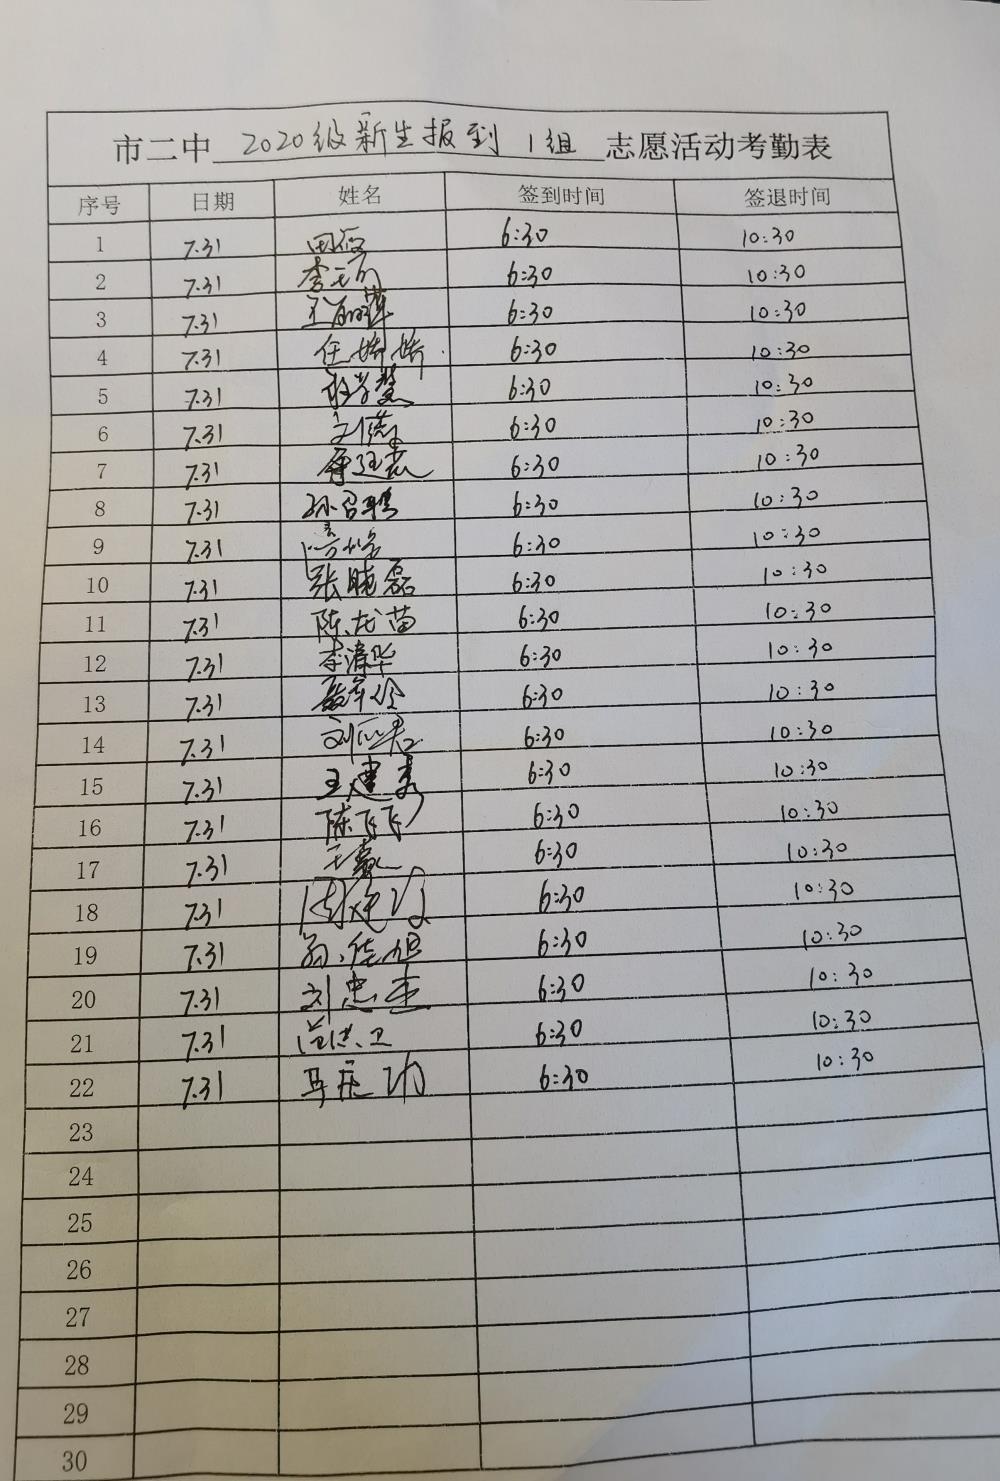 市二中 2020级新生报到 1组 志愿活动考勤表
序号 日期 姓名 签到时间 签退时间
1 7.31 6:30 10:30
2 7.31 6:30 10:30
3 7.31 6:30 10:30
4 7.31 任娇娇 6:30 10:30
5 7.31 6:30 10:30
6 7.31 6:30 10:30
7 7.31 6:30 10:30
8 7.31 6:30 10:30
9 7.31 6:30 10:30
10 7.31 张晓磊 6:30 10:30
11 7.31 陈龙苗 6:30 10:30
12 7.31 李清华 6:30 10:30
13 7.31 6:30 10:30
14 7.31 6:30 10:30
15 7.31 王建秀 6:30 10:30
16 7.31 陈飞飞 6:30 10:30
17 7.31 6:30 10:30
18 7.31 6:30 10:30
19 7.31 6:30 10:30
20 7.31 刘忠 6:30 10:30
21 7.31 6:30 10:30
22 7.31 6:30 10:30
23
24
25
26
27
28
29
30